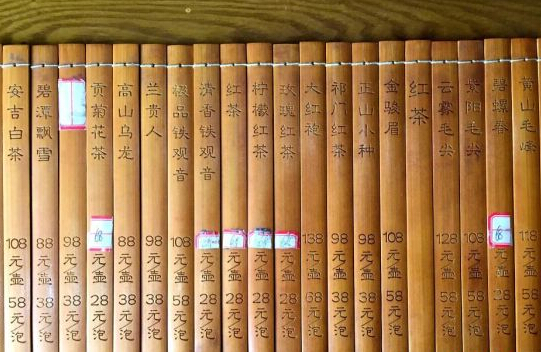 安吉白茶 108元/壶 58元/泡
碧潭飘雪 88元/壶 38元/泡
98元/壶 38元/泡
贡菊花茶 元/壶 28元/泡
高山乌龙 88元/壶 38元/泡
兰贵人 98元/壶 38元/泡
极品铁观音 108元/壶 58元/泡
清香铁观音 元/壶 28元/泡
红茶 元/壶 28元/泡
柠檬红茶 元/壶 28元/泡
玫瑰红茶 元/壶 28元/泡
大红袍 138元/壶 68元/泡
祁门红茶 98元/壶 38元/泡
正山小种 98元/壶 38元/泡
金骏眉 108元/壶 58元/泡
红茶
云雾毛尖 128元/壶 58元/泡
紫阳毛尖 108元/壶 58元/泡
碧螺春 元/壶 28元/泡
黄山毛峰 118元/壶 58元/泡